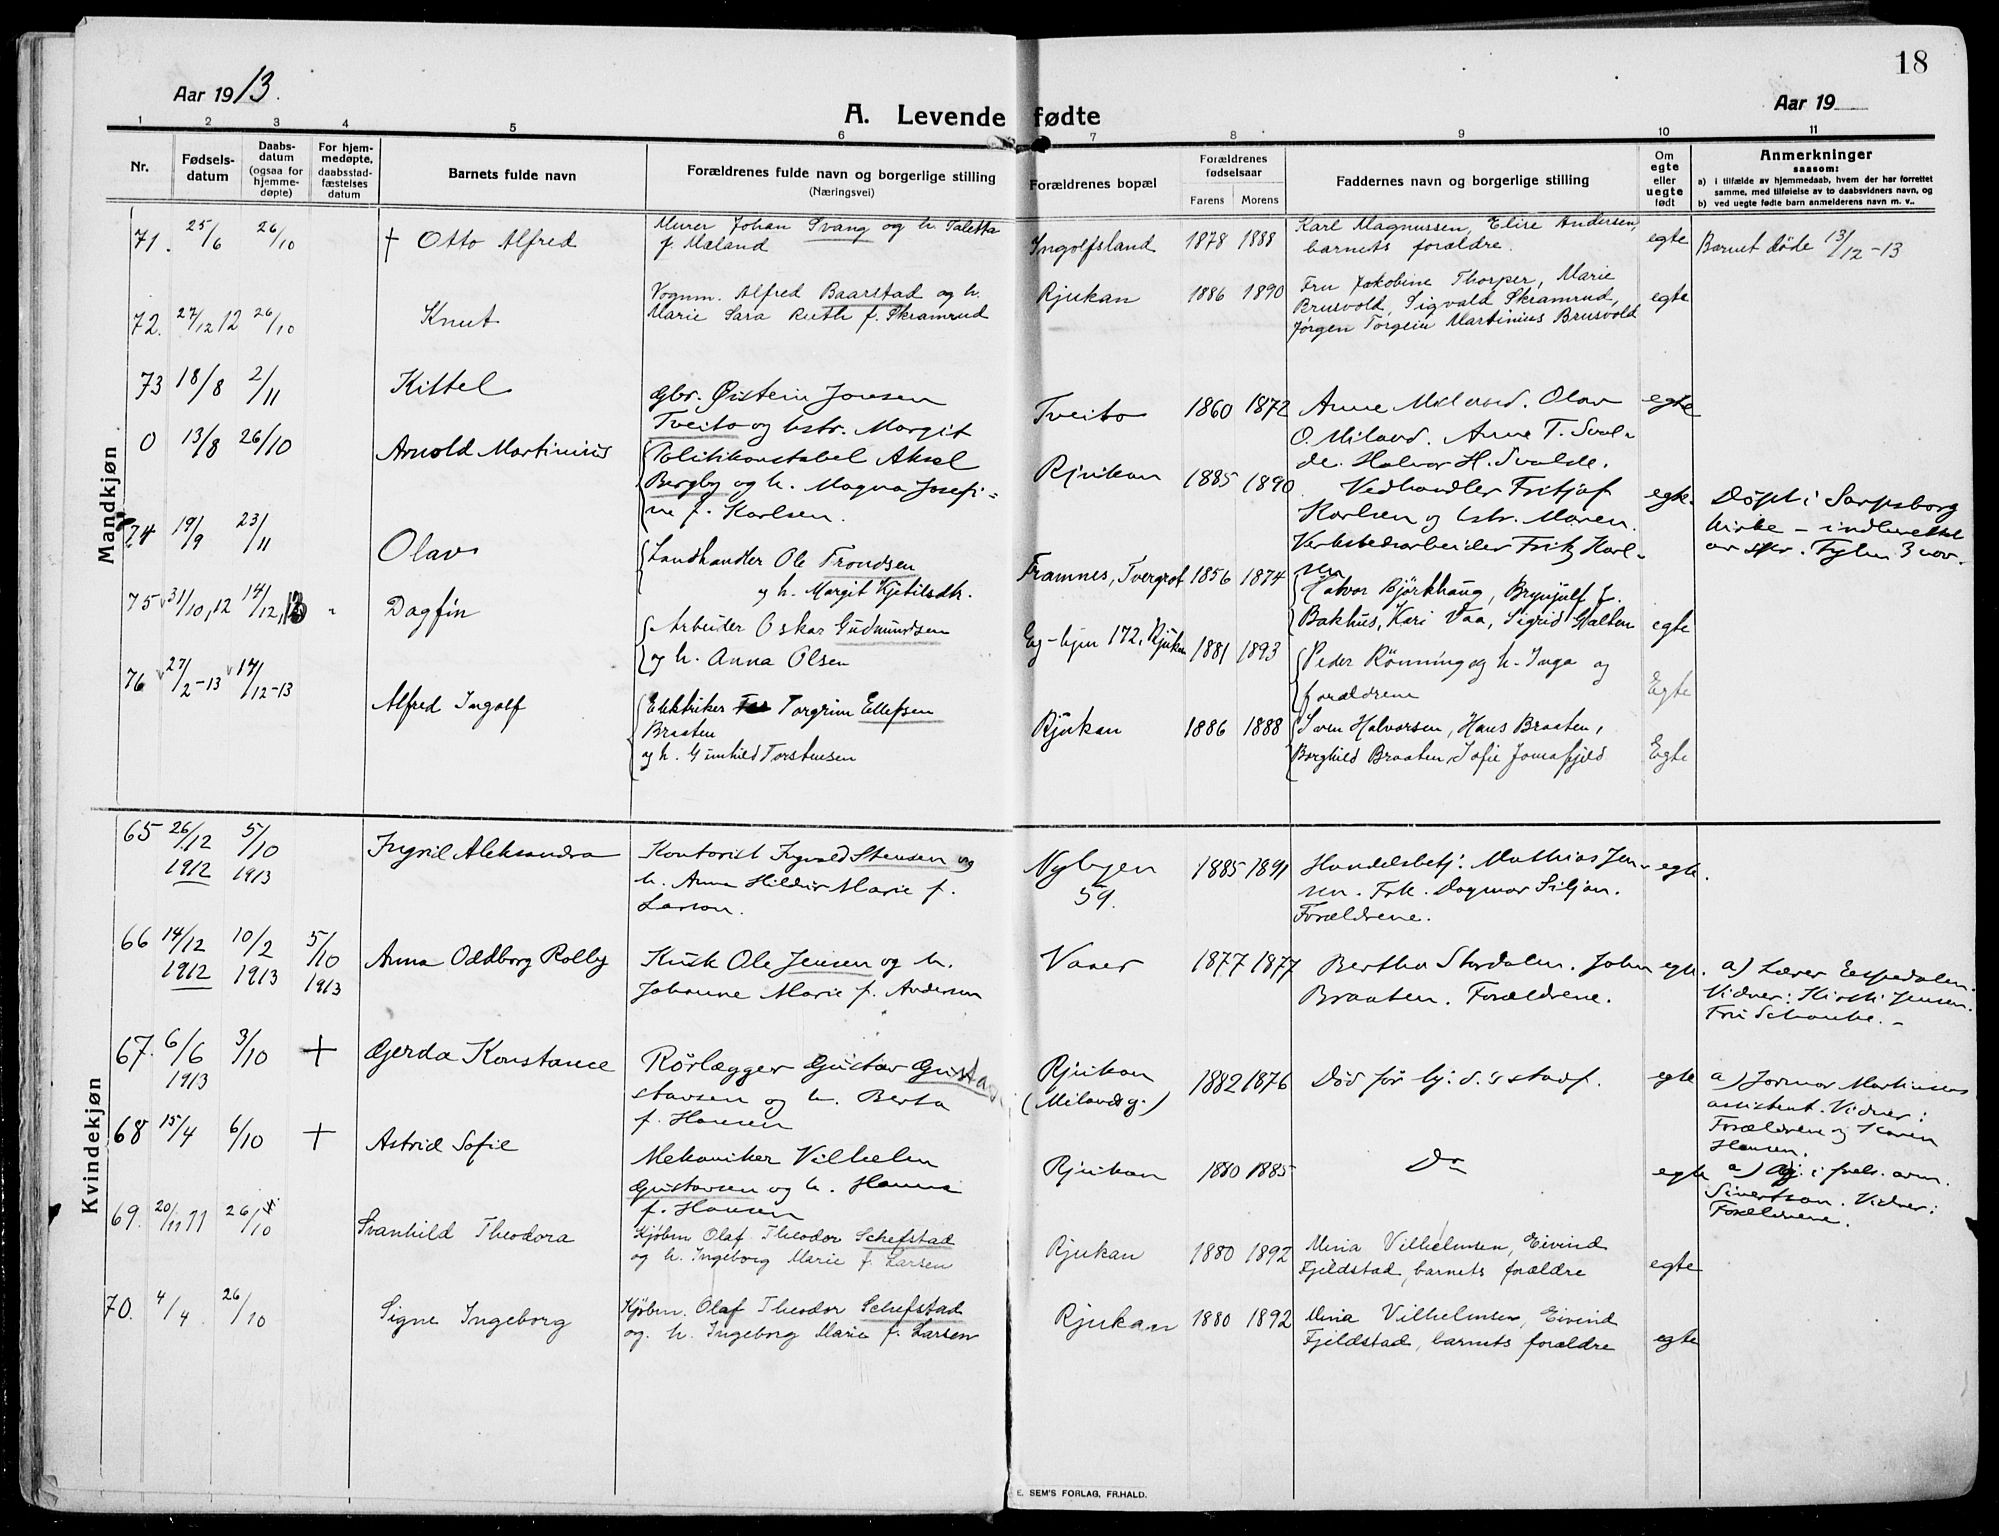 18
Aar 1913.
Aar 19
A. Levende fødte
1 2 3 4 5 6 7 8 9 10 11
Nr.
Fødsels-
datum
Daabs-
datum
(ogsaa for
hjemme-
døpte)
For hjem-
medøpte,
daabsstad-
fæstelses
datum
Barnets fulde navn
Forældrenes fulde navn og borgerlige stilling
(Næringsvei)
Forældrenes bopæl
Forældrenes
fødselsaar
Farens Morens
Faddernes navn og borgerlige stilling
Om
egte
eller
uegte
født
Anmerkninger
saasom:
a) i tilfælde av hjemmedaab, hvem der har forrettet
samme, med tilføielse av to daabsvidners navn, og
b) ved uegte fødte barn anmelderens navn m. v..
Mandkjøn
71. 25/6 26/10 † Otto Alfred
Murer Johan Svang og h. Taletta
f. Mæland
Ingolfsland 1878 1888
Karl Magnussen, Elise Andersen,
barnets forældre.
egte
Barnet døde 13/12-13
72. 27/12 12 26/10 Knut
Vognm. Alfred Baarstad og h.
Marie Sara Ruth f. Skramrud
Rjukan 1886 1890
Fru Jakobine Thorper, Marie
Brusvold, Sigvald Skramrud,
Jørgen Torgein Martinius Brusvold
egte
73 18/8 2/11 Kittel
Gbr. Øistein Jonsen
Tveito og hstr. Margit
Tveito 1860 1872
Anne Miland. Olav
O. Miland. Anne T. Sval-
de. Halvor H. Svalde.
egte
0 13/8 26/10 Arnold Martinius
Politikonstabel Aksel
Bergby og h. Magna Josefi-
ne f. Karlsen.
Rjukan 1885 1890
Vedhandler Fritjof
Karlsen og hstr. Maren.
Verkstedarbeider Fritz Karl-
sen
egte.
Døpt i Sarpsborg
kirke – indberettet
av spr. 3 nov.
74 19/9 23/11 Olav
Landhandler Ole Trondsen
og h. Margit Kjetilsdtr.
Framnes, Tvergrot 1856 1874
Halvor Björkhaug, Brynjulf L.
Bakhus, Kari Vaa, Sigrid Galten
egte
75 31/10,12 14/12,13 " Dagfin
Arbeider Oskar Gudmundsen
og h. Anna Olsen
Eg-byen 172, Rjukan 1881 1893
Peder Rønning og h. Inga og
forældrene
Egte
76 27/2-13 14/12-13 Alfred Ingolf
Elektriker Torgrim Ellefsen
Braaten
og h. Gunhild Torstensen
Rjukan 1886 1888
Sven Halvorsen, Hans Braaten,
Borghild Braaten, Sofie Jomafjeld
Egte
Kvindekjøn
65 26/12 1912 5/10 1913 Ingrid Aleksandra
Kontorist Ingvald Stensen og
h. Anna Hildur Marie f.
Larson.
Nybyen
59.
1885 1891
Handelsbetj. Mathias Jen-
sen. Frk. Dagmar Siljan.
Forældrene.
egte.
66 14/12 1912 10/2 1913 5/10 1913 Anna Oddborg Rolly
Kusk Ole Jensen og h.
Johanne Marie f. Andersen
Vaaer 1877 1877
Bertha Stordalen. John
Braaten. Forældrene.
egte.
a) Lærer Espedalen.
Vidner: Kirsti Jensen.
Fru Schanke. –
67. 6/6 1913 3/10 + Gerda Konstance
Rørlægger Gustav Gu-
stavsen og h. Berta
f. Hansen
Rjukan
(Milandsg.)
1882 1876
Død før hj. d.'s stadf.
egte
a) Jordmor Martinsens
assistent. Vidner:
Forældrene og Karen
Hansen.
68 15/4 6/10 + Astrid Sofie
Mekaniker Vilhelm
Gustavsen og h. Hanna
f. Hansen
Rjukan 1880 1885
Do
egte
a) Adj. i frels. arm.
Sivertson. Vidner:
Forældrene.
69. 20/11 11 26/10 Svanhild Theodora
Kjøbm Olaf Theodor Schefstad
og h. Ingeborg Marie f. Larsen
Rjukan 1880 1892
Mina Vilhelmsen, Eivind
Fjeldstad, barnets forældre
egte
70. 4/4 26/10 Signe Ingeborg
Kjøbm. Olaf Theodor Schefstad
og. h. Ingeborg Marie f. Larsen
Rjukan 1880 1892
Mina Vilhelmsen, Eivind
Fjeldstad, barnets forældre
egte
E. SEM'S FORLAG, FR.HALD.